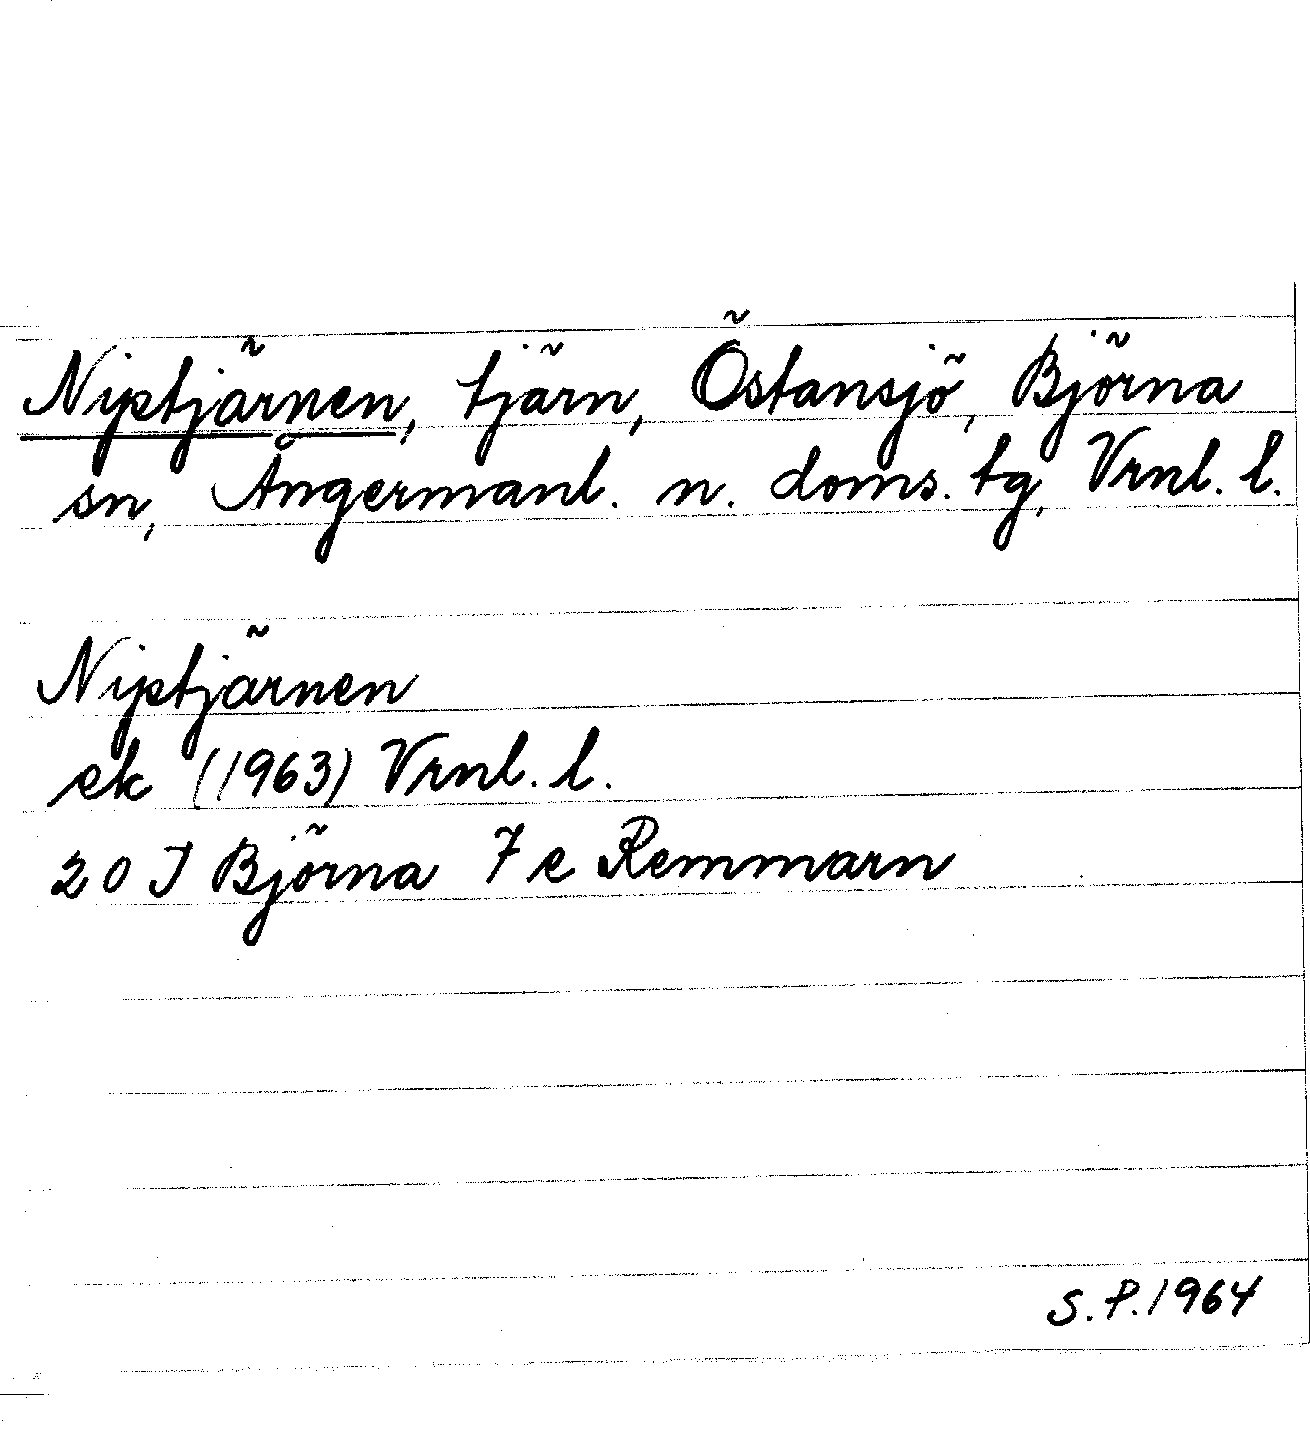 Niptjärnen, tjärn, Östansjö, Björna
sn, Ångermanl. n. doms. tg, Vrnl. l.
Niptjärnen
ek (1963) Vrnl. l.
20 J Björna 7 e Remmarn
S.P. 1964